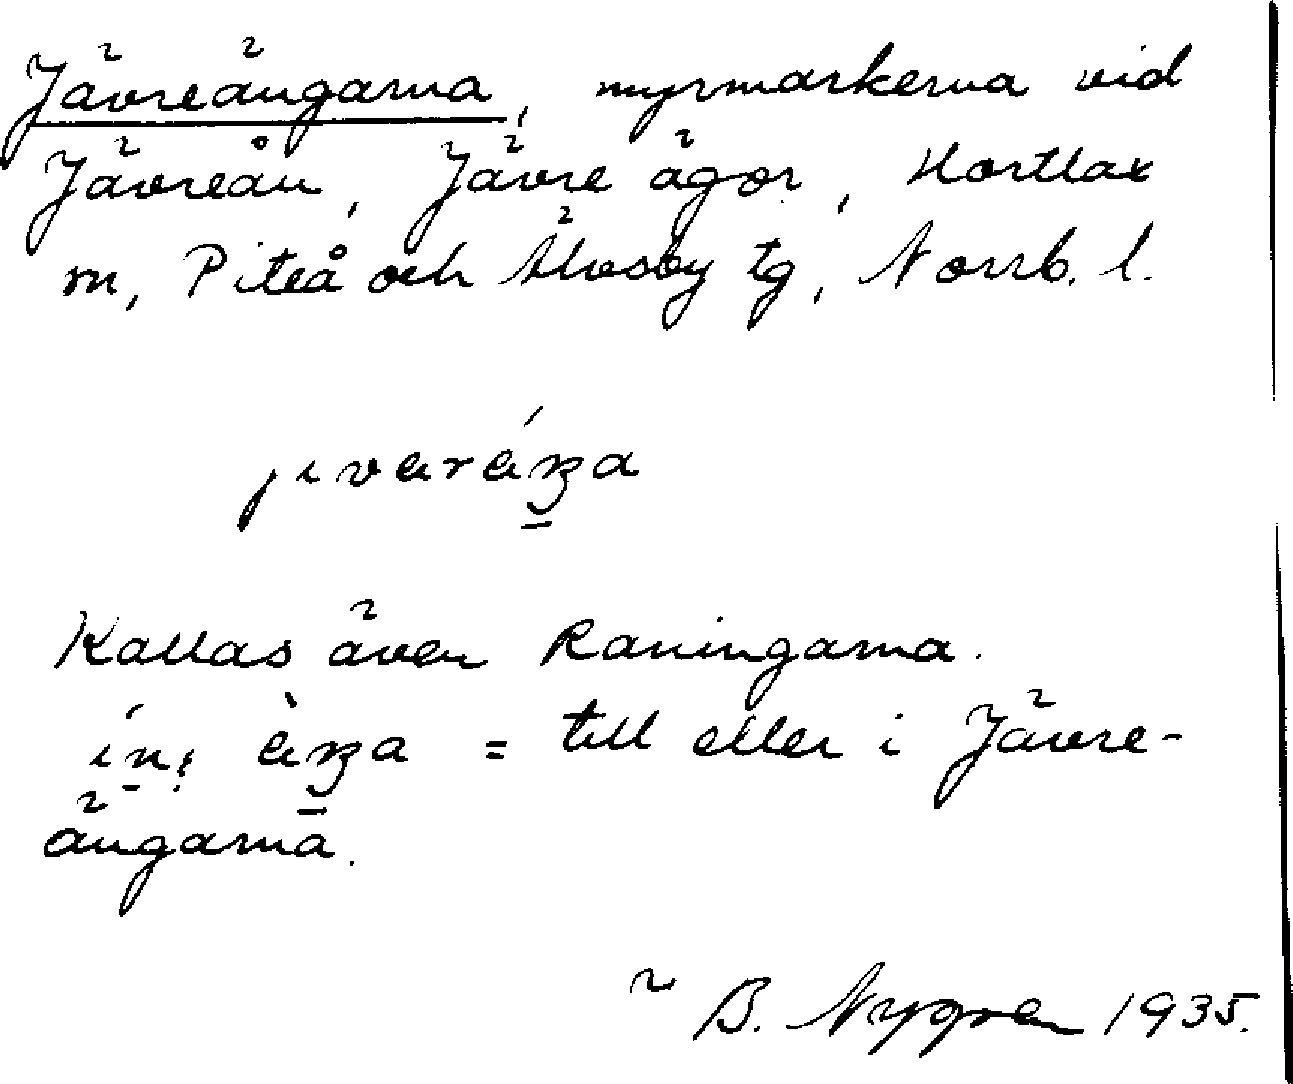 Jävreängarna, myrmarkerna vid
Jävreån, Jävre ägor, Hortlax
sn, Piteå och Älvsby tg, Norrb. l.
Kallas även Raningarna.
= till eller i Jävre-
ängarna.
B. Nygren 1935.